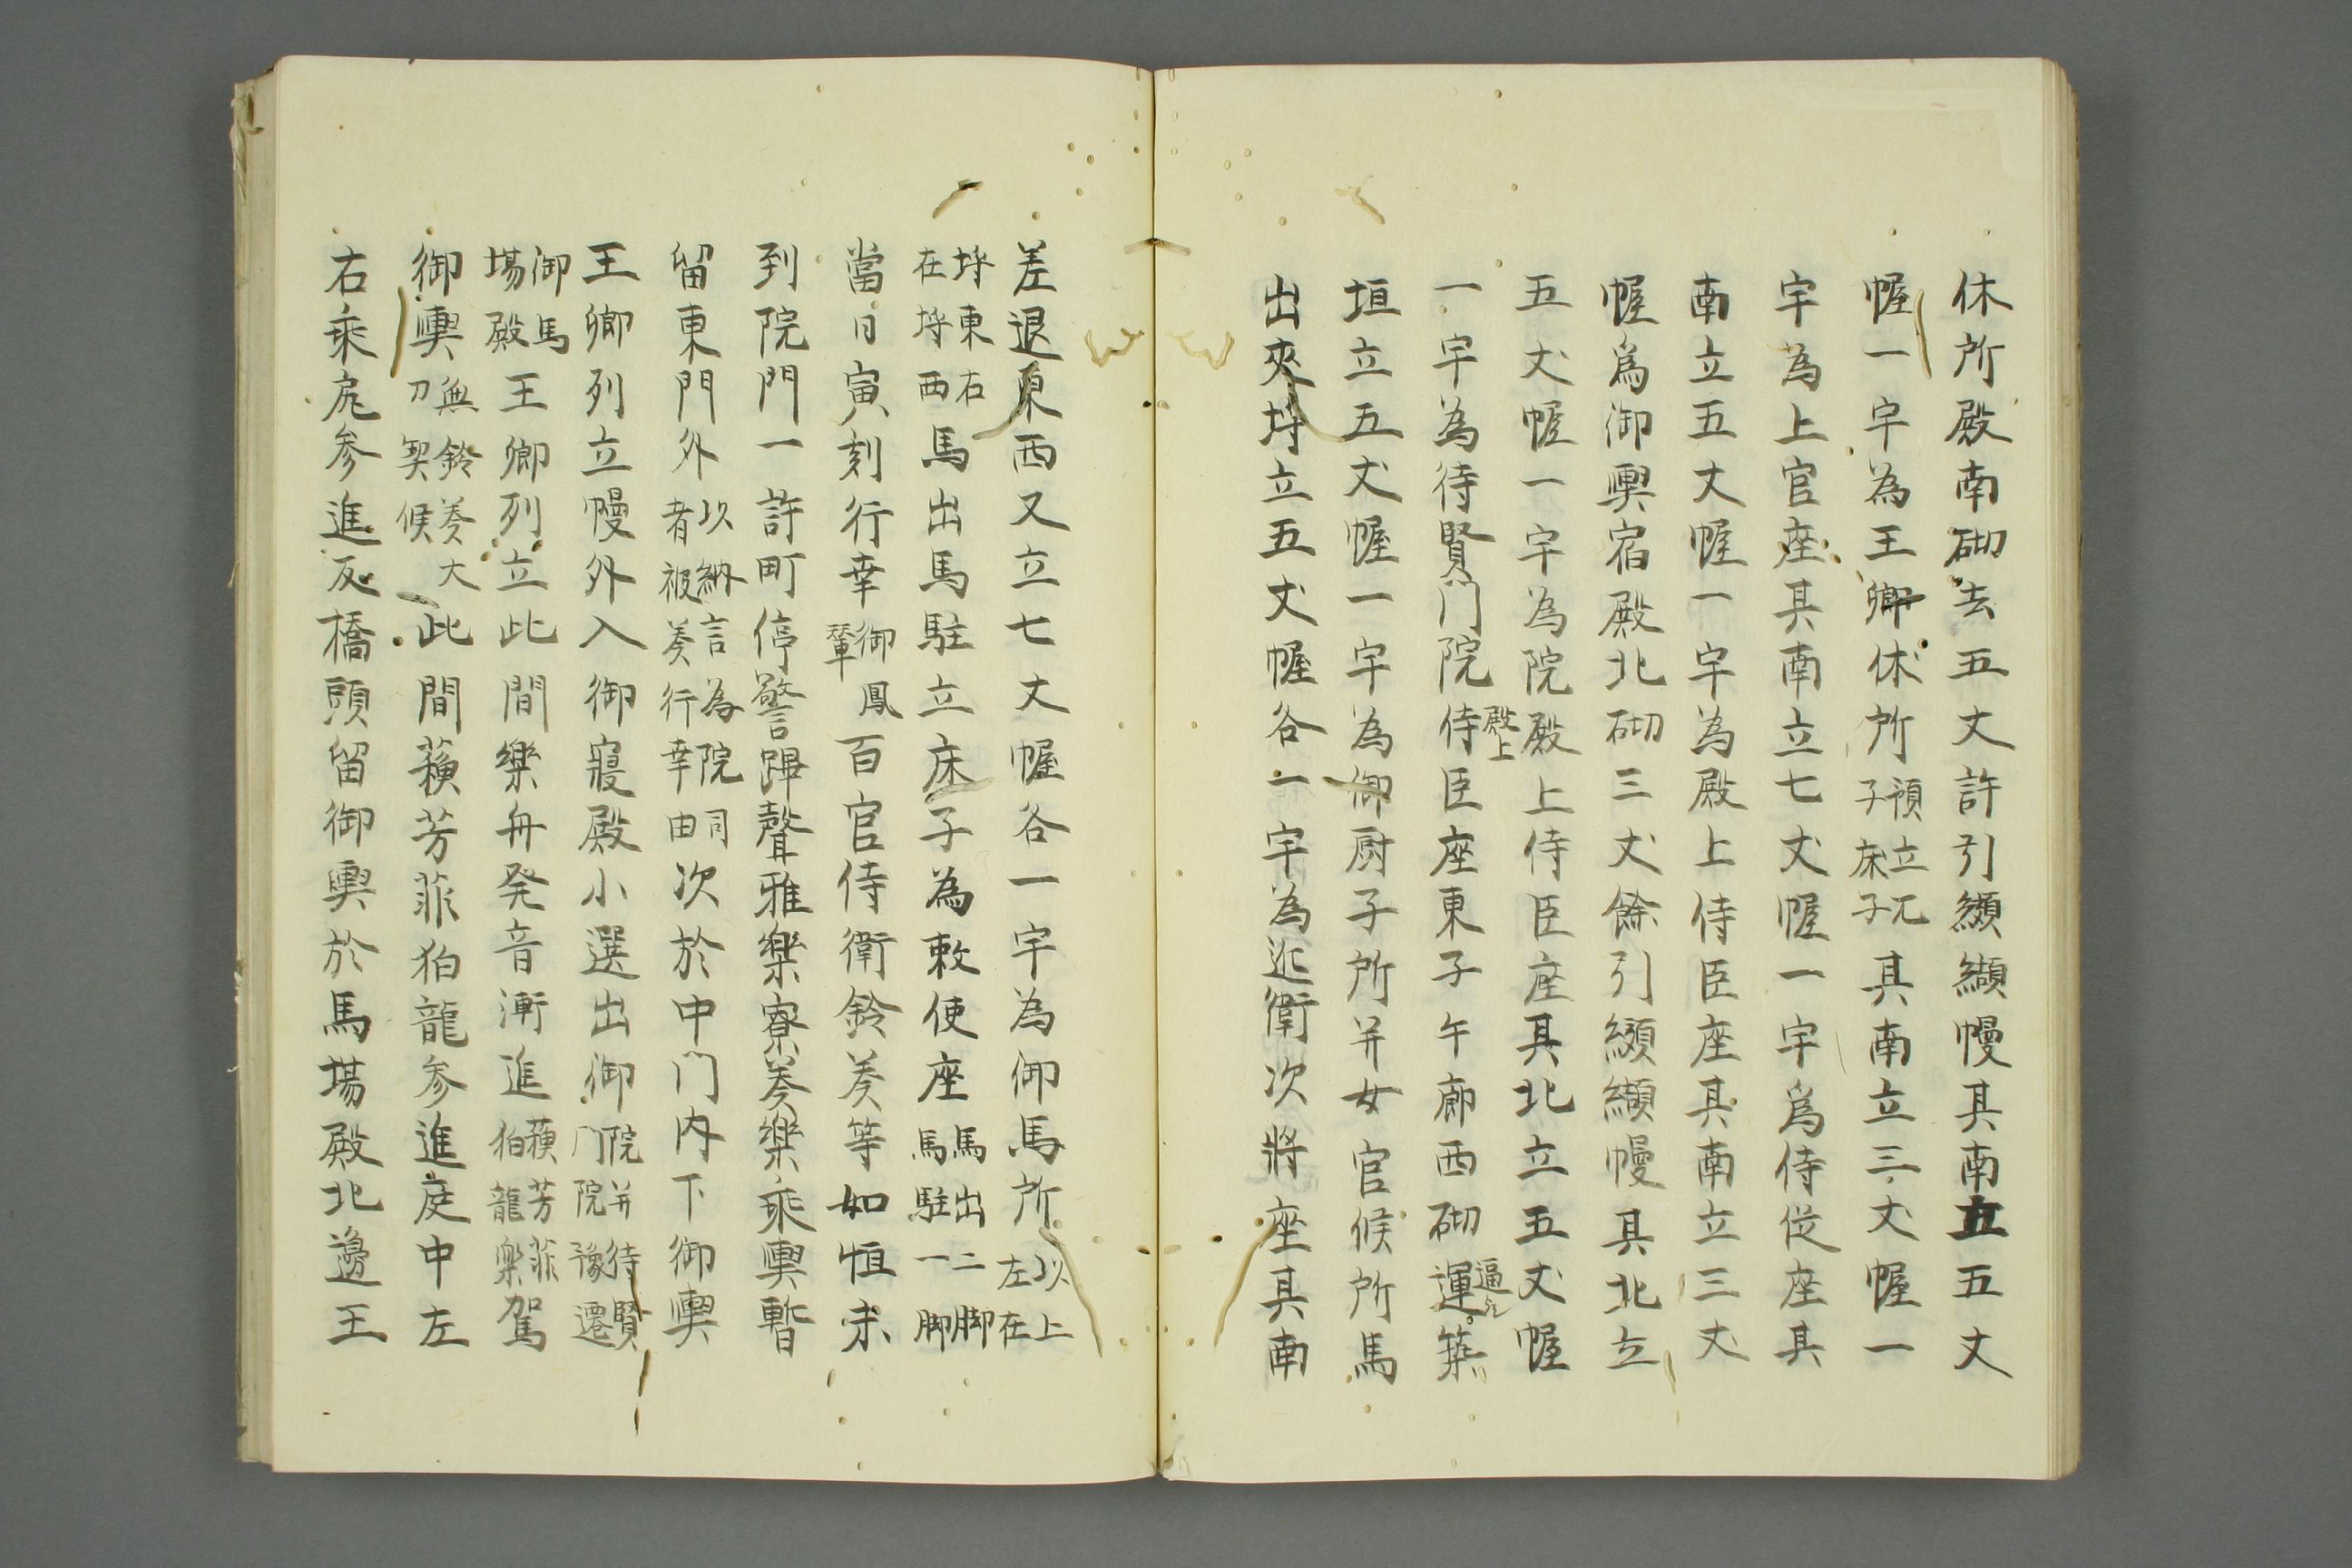 休所殿南砌去五丈許引纐纈幔其南立五丈
幄一宇為王卿休所預立兀子床子其南立三丈幄一
宇為上官座其南立七丈幄一宇爲侍従座其
南立五丈幄一宇為殿上侍臣座其南立三丈
幄爲御輿宿殿北砌三丈餘引纐纈幔其北立
五丈幄一宇為院殿上侍臣座其北立五丈幄
一宇為待賢门院殿上侍臣座東子午廊西砌運築
垣立五丈幄一宇為御厨子所并女官候所馬
出夾埒立五丈幄各一宇為近衛次将座其南
差退東西又立七丈幄各一宇為御馬所以上左在
埒東右在埒西馬出馬駐立床子為敕使座馬出二脚馬駐一脚
當日寅刻行幸御鳳輦百官侍衛鈴奏等如恒未
到院門一許町停警蹕聲雅樂寮奏樂乘輿暫
留東門外以納言為院司者被奏行幸由次於中门内下御輿
王卿列立幔外入御寢殿小選出御院并待賢门院豫遷
御馬場殿王卿列立此間樂舟発音漸進蘓芳菲狛龍樂駕
御輿無鈴奏大刀契候此間蘓芳菲狛龍参進庭中左
右乘庑参進反橋頭留御輿於馬場殿北邊王